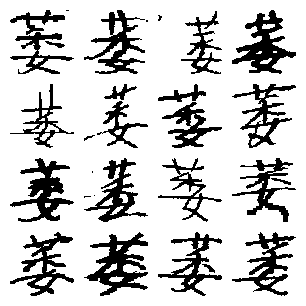 萎萎萎萎
萎萎萎萎
萎萎萎萎
萎萎萎萎